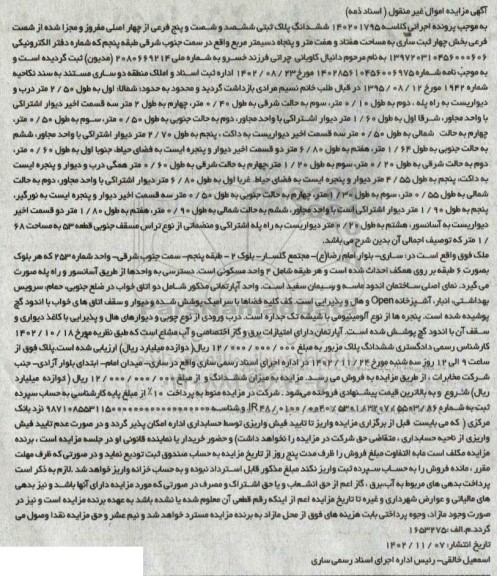 آگهی مزایده اموال غیر منقول ( اسناد ذمه)
به موجب پرونده اجرائی کلاسه ۱۴۰۲۰۱۷۹۵ ششدانگ پلاک ثبتی ششصد و شصت و پنج فرعی از چهار اصلی مفروز و مجزا شده از شصت
فرعی بخش چهار ثبت ساری به مساحت هفتاد و هفت متر و پنجاه دسیمتر مربع واقع در سمت جنوب شرقی طبقه پنجم که شماره دفتر الکترونیکی
به نام مرحوم دانیال کاویانی چراتی فرزند خسرو به شماره ملی (مدیون) ثبت گردیده است و
به موجب نامه شماره مورخ ۱۴۰۲/۰۸/۲۳ اداره ثبت اسناد و املاک منطقه دو ساری مستند به سند نکاحیه
شماره ۱۹۴۲ مورخ ۱۳۹۵/۰۸/۱۲ در قبال طلب خانم نسیم مرادی بازداشت گردید و محدود به حدود: شمالا: اول به طول ۲/۵۰ متر درب و
دیواریست به راه پله ، دوم به طول ۰/۱۰ متر، سوم به حالت شرقی به طول ۰/۴۰ متر، چهارم به طول ۲ متر سه قسمت اخیر دیوار اشتراکی
با واحد مجاور، شرقا اول به طول ۱/۶۰ متر دیوار اشتراکی با واحد مجاور، دوم به حالت جنوبی به طول ۰/۵۰ متر، سوم به طول ۰/۵۰ متر،
چهارم به حالت شمالی به طول ۰/۵۰ متر سه قسمت اخیر دیواریست به داکت ، پنجم به طول ۲/۷۰ متر دیوار اشتراکی با واحد مجاور، ششم
به حالت جنوبی به طول ۱/۶۴ متر، هفتم به طول ۶/۸۰ متر دو قسمت اخیر دیوار و پنجره ایست به فضای حیاط، جنوبا اول به طول ۰/۶۰ متر،
دوم به حالت شرقی به طول ۰/۲۰ متر، سوم به طول ۱/۲۰ متر،چهارم به حالت شرقی به طول ۰/۶۰ متر همگی درب و دیوار و پنجره ایست
به داکت، پنجم به طول ۴/۵۵ متر دیوار و پنجره ایست به فضای حیاط، غربا اول به طول ۶/۸۰ متر دیوار اشتراکی با واحد مجاور، دوم به حالت
شمالی به طول ۰/۵۵ متر، سوم به طول ۱/۳۰ متر، چهارم به حالت جنوبی به طول ۰/۵۰ متر سه قسمت اخیر دیوار و پنجره ایست به نورگیر،
پنجم به طول ۱/۹۰ متر دیوار اشتراکی است با واحد مجاور، ششم به حالت شمالی به طول ۰/۹۰ متر، هفتم به طول ۱/۸۰ متر دو قسمت اخیر
دیواریست به آسانسور، هشتم به طول ۰/۲۰ متر دیواریست به راه پله اشتراکی و منضماتی از نوع تراس مسقف جنوبی قطعه ۵۳ به مساحت ۶۸
/ ۱ متر که توصیف اجمالی آن بدین شرح می باشد.
ملک فوق واقع است در : ساری- بلوار امام رضا(ع)- مجتمع گلسار- بلوک ۲ – طبقه پنجم- سمت جنوب شرقی- واحد شماره ۲۵۳ که هر بلوک
بصورت ۶ طبقه بر روی همکف احداث شده است و هر طبقه شامل ۴ واحد مسکونی است. دسترسی به واحدها از طریق آسانسور و راه پله صورت
می گیرد. نمای اصلی ساختمان اندود ماسه و سیمان سفید است. واحد آپارتمانی مذکور شامل دو اتاق خواب در ضلع جنوبی، حمام، سرویس
بهداشتی، انبار، آشپزخانه Open و هال و پذیرایی است. کف کلیه فضاها با سرامیک پوشش شده و دیوار و سقف اتاق های خواب با اندود گچ
پوشیده شده است. پنجره ها از نوع آلومینیومی با شیشه تک جداره است. درب ورودی از نوع چوبی و دیوارهای هال و پذیرایی با کاغذ دیواری و
سقف آن با اندود گچ پوشش شده است. آپارتمان دارای امتیازات برق و گاز اختصاصی و آب مشاع است که طبق نظریه مورخ ۱۴۰۲/۱۰/۱۸
کارشناس رسمی دادگستری ششدانگ پلاک مزبور به مبلغ ۱۲/۰۰۰/۰۰۰/۰۰۰ ریال( دوازده میلیارد ریال) ارزیابی شده است.پلاک فوق از
ساعت ۹ الی ۱۲ روز سه شنبه مورخ ۱۴۰۲/۱۱/۲۴ در اداره اجرای اسناد رسمی ساری واقع در ساری- میدان امام- ابتدای بلوار آزادی- جنب
شرکت مخابرات ، از طریق مزایده به فروش می رسد. مزایده به میزان ششدانگ و از مبلغ ۱۲/۰۰۰/۰۰۰/۰۰۰ ریال ( دوازده میلیارد
ریال) شروع و به بالاترین قیمت پیشنهادی فروخته می‌شود. شرکت در مزایده منوط به پرداخت ۱۰٪ از مبلغ پایه کارشناسی به حساب سپرده
ثبت به شماره و شناسه نزد بانک
مرکزی ( که می بایست قبل از برگزاری مزایده واریز تا تایید فیش واریزی توسط حسابداری اداره امکان پذیر گردد و در صورت عدم تایید فیش
واریزی از ناحیه حسابداری ، متقاضی حق شرکت در مزایده را نخواهد داشت) و حضور خریدار یا نماینده قانونی او در جلسه مزایده است ، برنده
مزایده مکلف است مابه التفاوت مبلغ فروش را ظرف مدت پنج روز از تاریخ مزایده به حساب صندوق ثبت تودیع نماید و در صورتی که ظرف مهلت
مقرر ، مانده فروش را به حساب سپرده ثبت واریز نکند مبلغ مذکور قابل استرداد نبوده و به حساب خزانه واریز خواهد شد .لازم به ذکر است
پرداخت بدهی های مربوط به آب،برق ، گاز اعم از حق انشعاب و یا حق اشتراک و مصرف در صورتی که مورد مزایده دارای آنها باشد و نیز بدهی
های مالیاتی و عوارض شهرداری و غیره تا تاریخ مزایده اعم از اینکه رقم قطعی آن معلوم شده یا نشده باشد به عهده برنده مزایده است و نیز در
صورت وجود مازاد، وجوه پرداختی بابت هزینه های فوق از محل مازاد به برنده مزایده مسترد خواهد شد و نیم عشر و حق مزایده نقدا وصول می
گردد.م.الف :۱۶۵۳۲۷۵
تاریخ انتشار: ۱۴۰۲/۱۱/۰۷
اسمعیل خالقی- رئیس اداره اجرای اسناد رسمی ساری